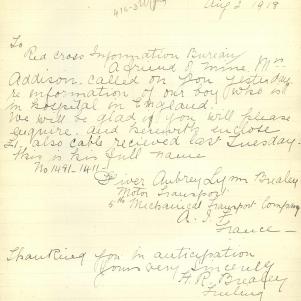 Aug 2 1918
To
Red Cross Information Bureau
A friend of mine, Mrs
Addison called on you yesterday
re information of our boy who is
in hospital in England.
We will be glad if you will please
enquire. and herewith enclose
£1 also cable recieved last Tuesday.
This is his full name
No 1491-A-1411
Driver Aubrey Lynn Brealey
Motor Transport
5th Mechanical Transport Company
A.I.F.
France
Thanking you in anticipation
Yours very sincerely
H. R. Brealey